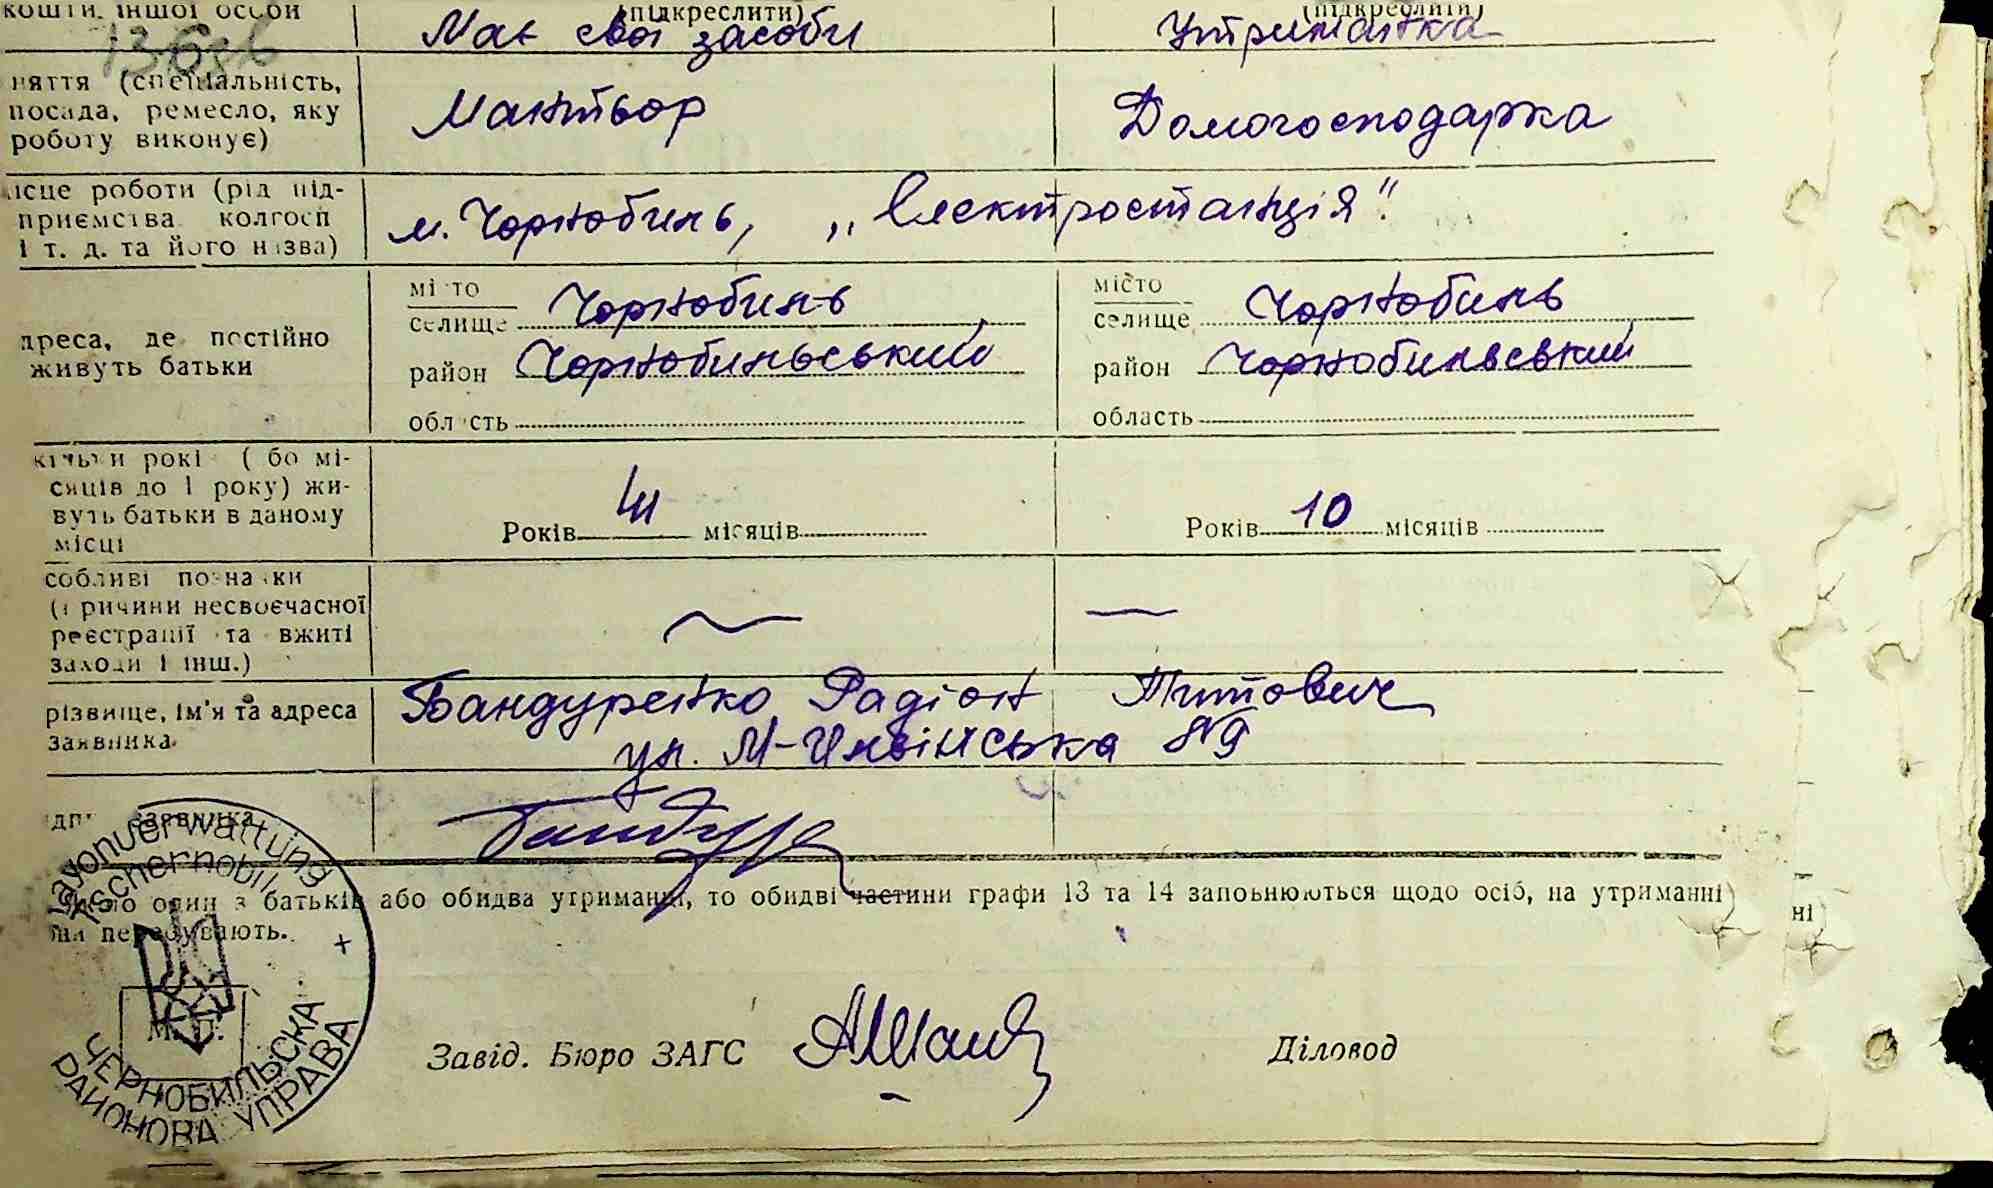 кошти іншої особи
(підкреслити) (підкреслити)
Має свої засоби Утриманка
няття (спеціальність,
посада, ремесло, яку
роботу виконує)
Мантьор Домогосподарка
ісце роботи (рід під-
приємства колгосп
і т. д. та його назва)
м. Чорнобиль, „Електростанція".
дреса, де постійно
живуть батьки
місто Чорнобиль місто Чорнобиль
селище селище
район Чорнобильський район Чорнобильський
область область
кільки рокі ( бо мі-
сяців до 1 року) жи-
вуть батьки в даному
місці
Років місяців Років 10 місяців
собливі познаки
( ричини несвоєчасної
реєстрації та вжиті
заходи і інш.)
різвище, ім'я та адреса
заявника
Бандуренко Радіон Титович
ул. М- 89
дп заявника
Банду
один з батьків або обидва утриманці, то обидві частини графи 13 та 14 заповнюються щодо осіб, на утриманні
ни перебувають.
ні
Rayonverwaltung
Tschernobil
+
М. П.
ЧЕРНОБИЛЬСКА
РАЙОНОВА УПРАВА
Завід. Бюро ЗАГС Діловод